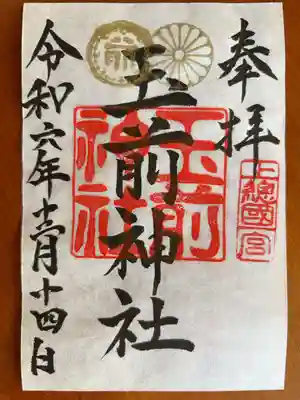 奉拝
上總國一宮
玉前神社
玉前神社
令和六年十二月十四日